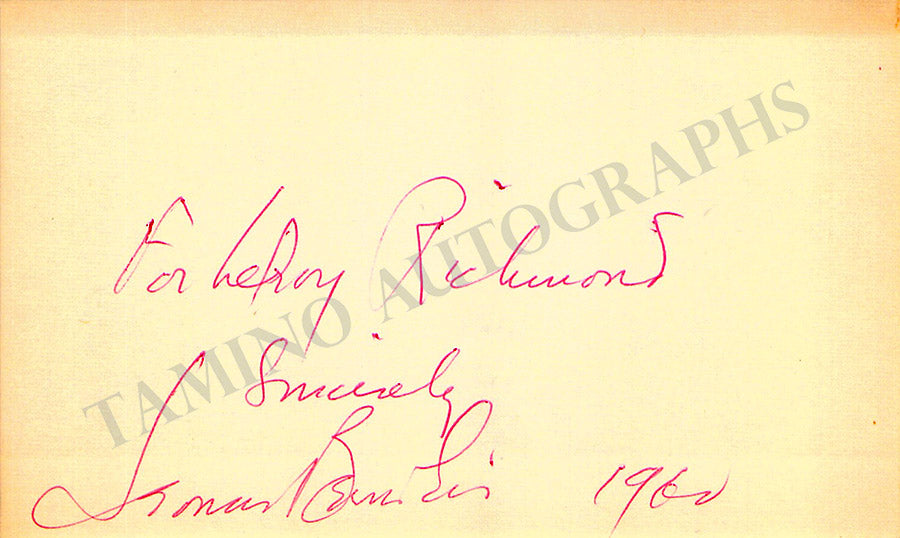 For LeRoy Richmond
Sincerely
Leonard Bernstein 1960
TAMINO AUTOGRAPHS